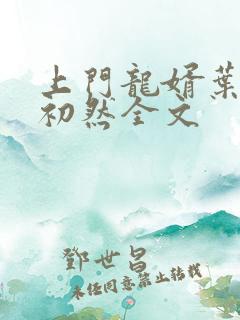 上門龍婿葉
初然全文
鄧世昌
未經同意禁止轉載